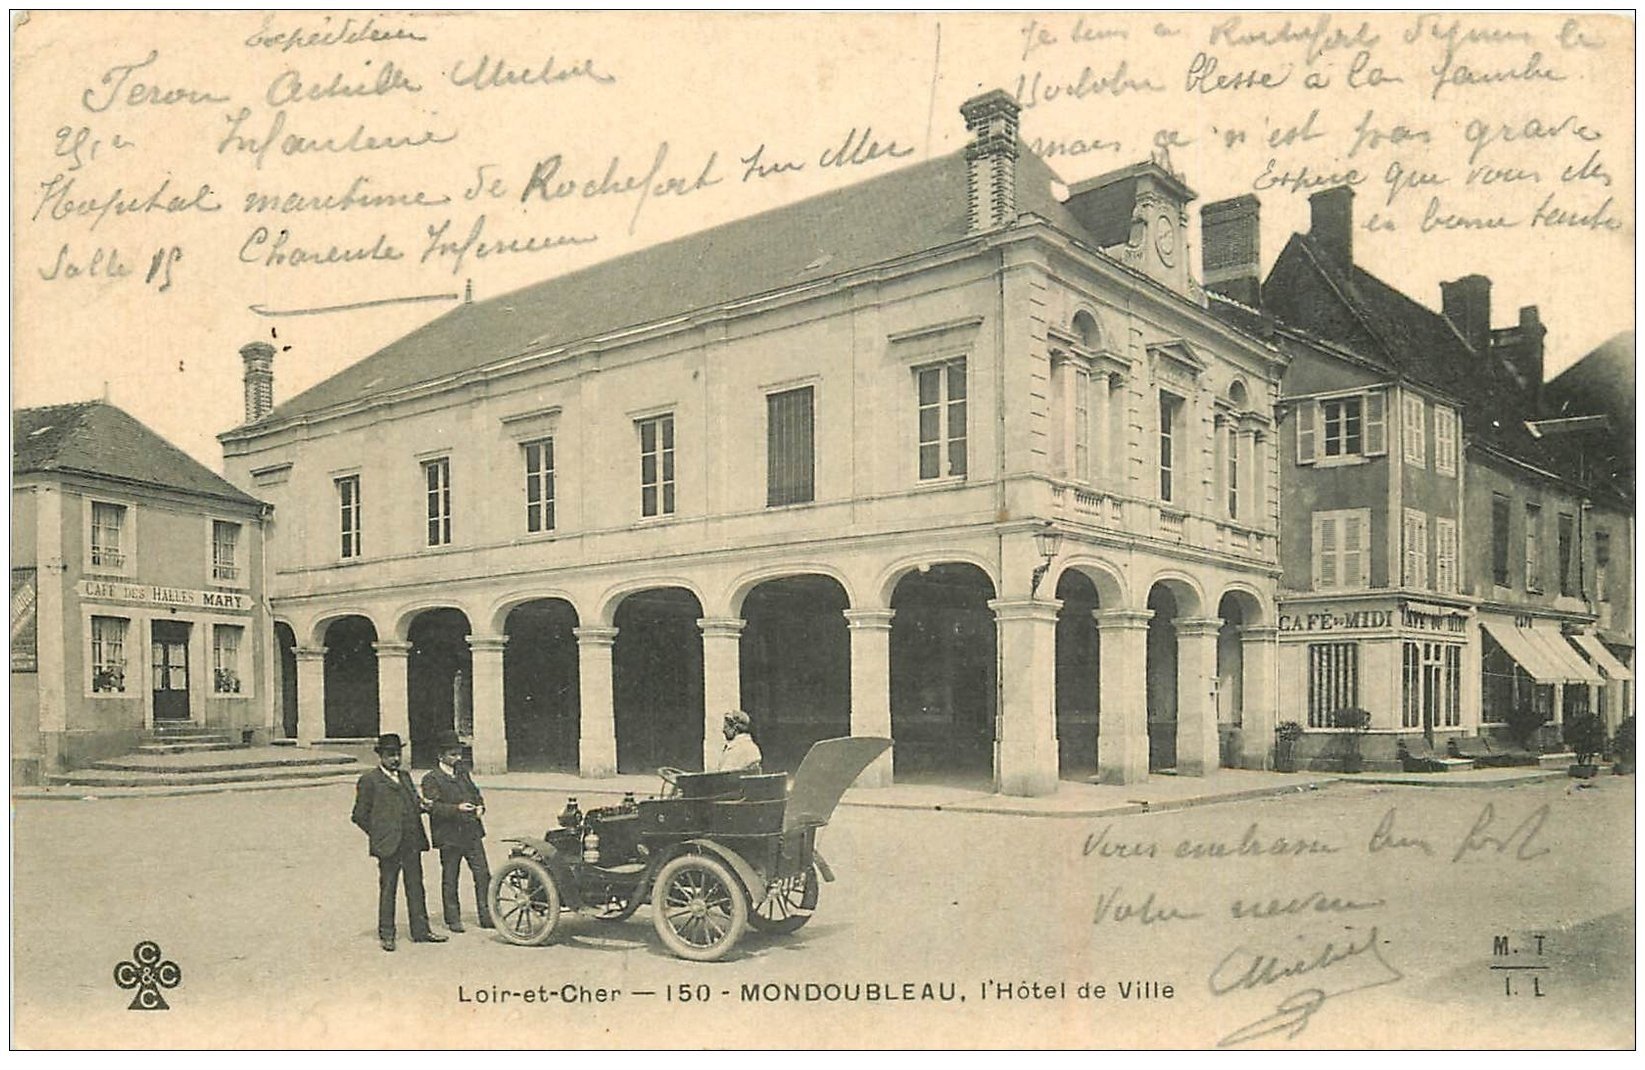 Expéditeur
Teron Achille Michel
Infanterie
Hopital maritime de Rochefort sur Mer
Salle 15 Charente Inferieure
Je suis a Rochefort depuis le
blesse à la jambe
mais ce n'est pas grave
Espere que vous etes
en bonne sante
CAFÉ DES HALLES MARY
CAFÉ DU MIDI
CAFÉ DU MIDI
CAFÉ
Vous embrasse bien fort
Votre neveu
Michel
C C & C C
Loir-et-Cher — 150 - MONDOUBLEAU, l'Hôtel de Ville
M. T
I. L